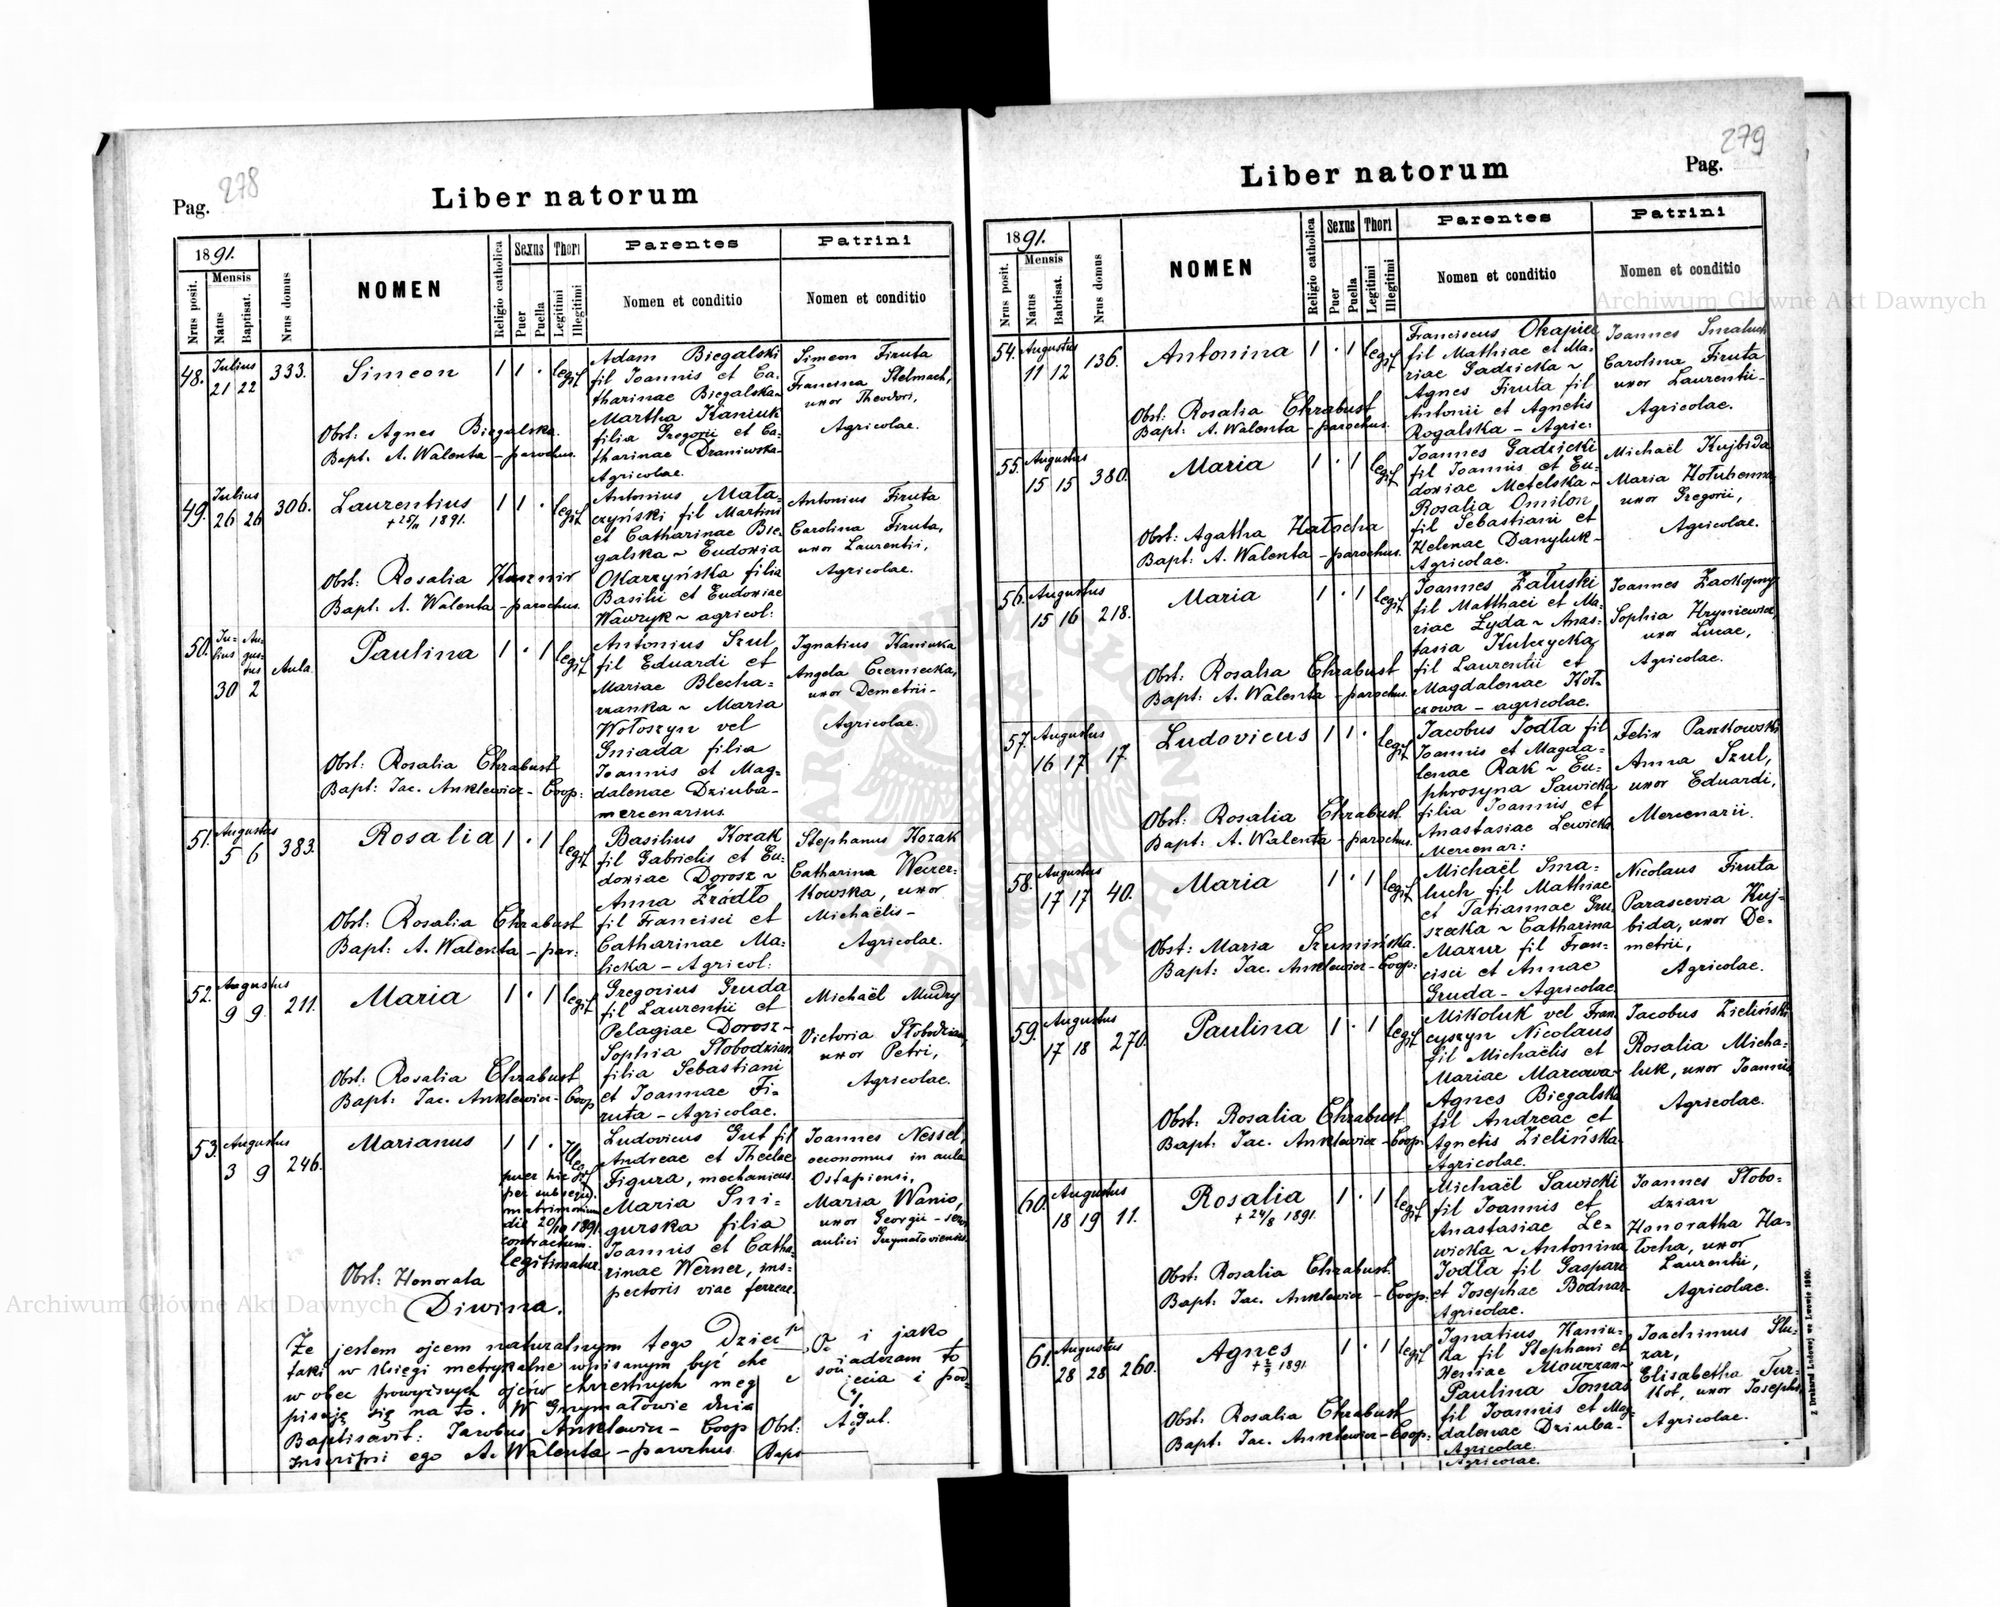 278
Pag.
Liber natorum
1891.
Nrus posit.
Mensis
Natus
Baptisat.
Nrus domus
NOMEN
Religio catholica
Sexus
Puer
Puella
Thori
Legitimi
Illegitimi
Parentes
Nomen et conditio
Patrini
Nomen et conditio
48. Julius 21 22 333. Simeon 1 1 . legit
Obst: Agnes Biegalska.
Bapt. A. Walenta - parochus.
Adam Biegalski
fil Joannis et Ca-
tharinae Biegalska ~
Martha Kaniuk
filia Gregorii et Ca-
tharinae Draniwska
Agricolae.
Simeon Firuta
Francisca Stelmach,
uxor Theodori,
Agricolae.
49. Julius 26 26 306. Laurentius 1 1 . legit
1891.
Obst: Rosalia Kusznir
Bapt: A. Walenta - parochus.
Antonius Mała-
czyński fil Martini
et Catharinae Bie-
galska ~ Eudoxia
Okarzyńska filia
Basilii et Eudoxiae
Wawryk ~ agricol:
Antonius Firuta
Carolina Firuta,
uxor Laurentii,
Agricolae.
50. Ju- Au-
lius gus-
tus
30 2 Aula. Paulina 1 . 1 legit
Obst: Rosalia Chrabust
Bapt: Jac. Anklewicz - Coop:
Antonius Szul
fil Eduardi et
Mariae Blecha-
rzanka ~ Maria
Wołoszyn vel
Gniada filia
Joannis et Mag-
dalenae Dziuba -
mercenarius.
Ignatius Kaniuka
Angela Czerniecka,
uxor Demetrii -
Agricolae.
51. Augustus 5 6 383. Rosalia 1 . 1 legit
Obst: Rosalia Chrabust
Bapt: A. Walenta - par:
Basilius Kozak
fil Gabrielis et Eu-
doxiae Dorosz ~
Anna Źródło
fil Francisci et
Catharinae Ma-
licka - Agricol:
Stephanus Kozak
Catharina Weczer-
kowska, uxor
Michaëlis -
Agricolae.
52. Augustus 9 9. 211. Maria 1 . 1 legit
Obst: Rosalia Chrabust
Bapt: Jac. Anklewicz - Coop
Gregorius Gruda
fil Laurentii et
Pelagiae Dorosz ~
Sophia Słobodzian
filia Sebastiani
et Joannae Fi-
ruta - Agricolae.
Michaël Mudry
Victoria Słobodzian,
uxor Petri,
Agricolae.
53. Augustus 3 9 246. Marianus 1 1 . Illegit
puer hic
per subsequ.
matrimonium
die 20/10 1891
contractum.
legitimatur.
Obst: Honorata
Diwina.
Ludovicus Gut fil
Andreae et Theclae
Figura, mechanicus.
Maria Sni-
gurska filia
Joannis et Catha-
rinae Werner, ins-
pectoris viae ferreae.
Joannes Nessel,
oeconomus in aula
Ostapiensi,
Maria Wanio,
uxor Georgii -
aulici Grzymałoviensis.
Że jestem ojcem naturalnym tego Dzieci
i jako
taki w księgi metrykalne wpisanym być chc
to
w obec powyższych ojców chrzestnych
i pod-
pisuję się na to. W Grzymałowie dnia
Baptisavit: Jacobus Anklewicz - Coop
Inscripsi ego A. Walenta - parochus.
Obst:
Bapt
279
Liber natorum
Pag.
1891.
Nrus posit.
Mensis
Natus
Babtisat.
Nrus domus
NOMEN
Religio catholica
Sexus
Puer
Puella
Thori
Legitimi
Illegitimi
Parentes
Nomen et conditio
Patrini
Nomen et conditio
54. Augustus 11 12 136. Antonina 1 . 1 legit
Obst: Rosalia Chrabust
Bapt: A. Walenta - parochus.
Franciscus Okapiec
fil Mathiae et Ma-
riae Gadzicka ~
Agnes Firuta fil
Antonii et Agnetis
Rogalska - Agric:
Joannes Smaluch
Carolina Firuta
uxor Laurentii -
Agricolae.
55. Augustus 15 15 380. Maria 1 . 1 legit
Obst: Agatha Hałocha
Bapt: A. Walenta - parochus.
Joannes Gadzicki
fil Joannis et Eu-
doxiae Metelska ~
Rosalia Omilon
fil Sebastiani et
Helenae Danyluk -
Agricolae.
Michaël Kujbida
Maria
uxor Gregorii,
Agricolae.
56. Augustus 15 16 218. Maria 1 . 1 legit
Obst: Rosalia Chrabust
Bapt: A. Walenta - parochus.
Joannes Załuski
fil Matthaei et Ma-
riae Żyda ~ Anas-
tasia Kulczycka
fil Laurentii et
Magdalenae Koł-
czowa - agricolae.
Joannes Zaokopny
Sophia Hryniewicz,
uxor Lucae,
Agricolae.
57. Augustus 16 17 17. Ludovicus 1 1 . legit
Obst: Rosalia Chrabust
Bapt: A. Walenta - parochus.
Jacobus Jodła fil
Joannis et Magda-
lenae Rak ~ Eu-
phrosyna Sawicka
filia Joannis et
Anastasiae Lewicka
Mercenar:
Felix Paszkowski
Anna Szul,
uxor Eduardi,
Mercenarii.
58. Augustus 17 17 40. Maria 1 . 1 legit
Obst: Maria Szumińska.
Bapt: Jac. Anklewicz - Coop:
Michaël Sma-
luch fil Mathiae
et Tatiannae Gru-
szecka ~ Catharina
Mazur fil Fran-
cisci et Annae
Gruda - Agricolae
Nicolaus Firuta
Parascevia Kuj-
bida, uxor De-
metrii,
Agricolae.
59. Augustus 17 18 270. Paulina 1 . 1 legit
Obst: Rosalia Chrabust
Bapt: Jac. Anklewicz - Coop:
Mikoluk vel Fran-
cyszyn Nicolaus
fil Michaëlis et
Mariae Marcowa ~
Agnes Biegalska
fil Andreae et
Agnetis Zielińska
Agricolae.
Jacobus Zieliński
Rosalia Micha-
luk, uxor Joannis
Agricolae.
60. Augustus 18 19 11. Rosalia 1 . 1 legit
+ 24/8 1891.
Obst: Rosalia Chrabust.
Bapt: Jac. Anklewicz - Coop:
Michaël Sawicki
fil Joannis et
Anastasiae Le-
wicka ~ Antonina
Jodła fil Gaspari
et Josephae Bodnar
Agricolae.
Joannes Słobo-
dzian
Honoratha Ha-
łocha, uxor
Laurentii,
Agricolae.
61. Augustus 28 28 260. Agnes 1 . 1 legit
1891
Obst: Rosalia Chrabust
Bapt: Jac. Anklewicz - Coop:
Ignatius Kaniu-
ka fil Stephani et
Xeniae
Paulina Tomas
fil Joannis et Mag-
dalenae Dziuba -
Agricolae.
Agricolae.
Joachimus Slu-
zar,
Elisabetha Tur-
kot, uxor Josephi,
Agricolae.
Z Drukarni Ludowej we Lwowie 1890.
Archiwum Główne Akt Dawnych
Archiwum Główne Akt Dawnych